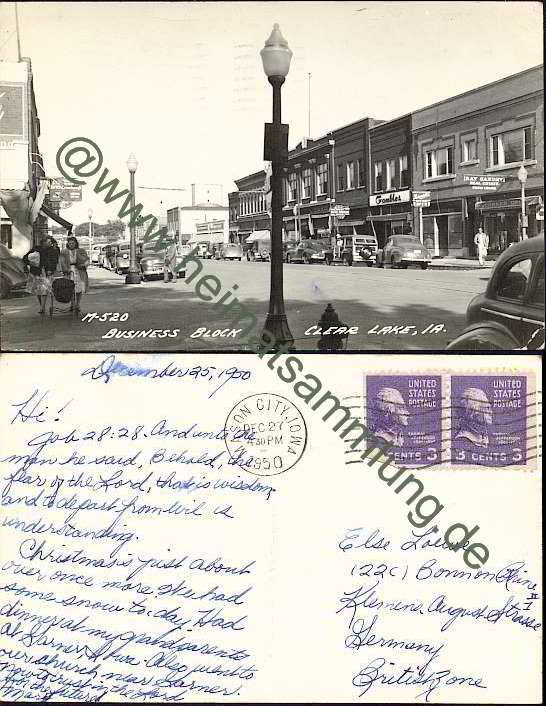 Gambles
RAY BARNEY
REAL ESTATE
M-520
BUSINESS BLOCK
CLEAR LAKE, IA.
@www.heimatsammlung.de
December 25, 1950
Hi!
Job 28:28. And unto the
man he said, Behold, the
fear of the Lord, that is wisdom
and to depart from evil is
understanding.
Christmas is just about
over once more. We had
some snow to-day. Had
dinner at my grandparents
at Garner, Iowa. Also went to
our church near Garner.
how to trust in the Lord
for the future.
Mary
MASON CITY, IOWA
DEC 27
4 30 PM
1950
UNITED
STATES
POSTAGE
3 CENTS 3
UNITED
STATES
POSTAGE
3 CENTS 3
Else
(22c) Bonn on Rhine
Klemens August Strasse
Germany
British Zone